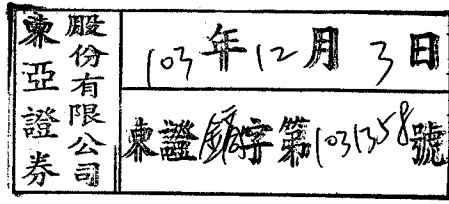 東亞證券
股份有限公司
103年12月3日
東證錡字第1031358號